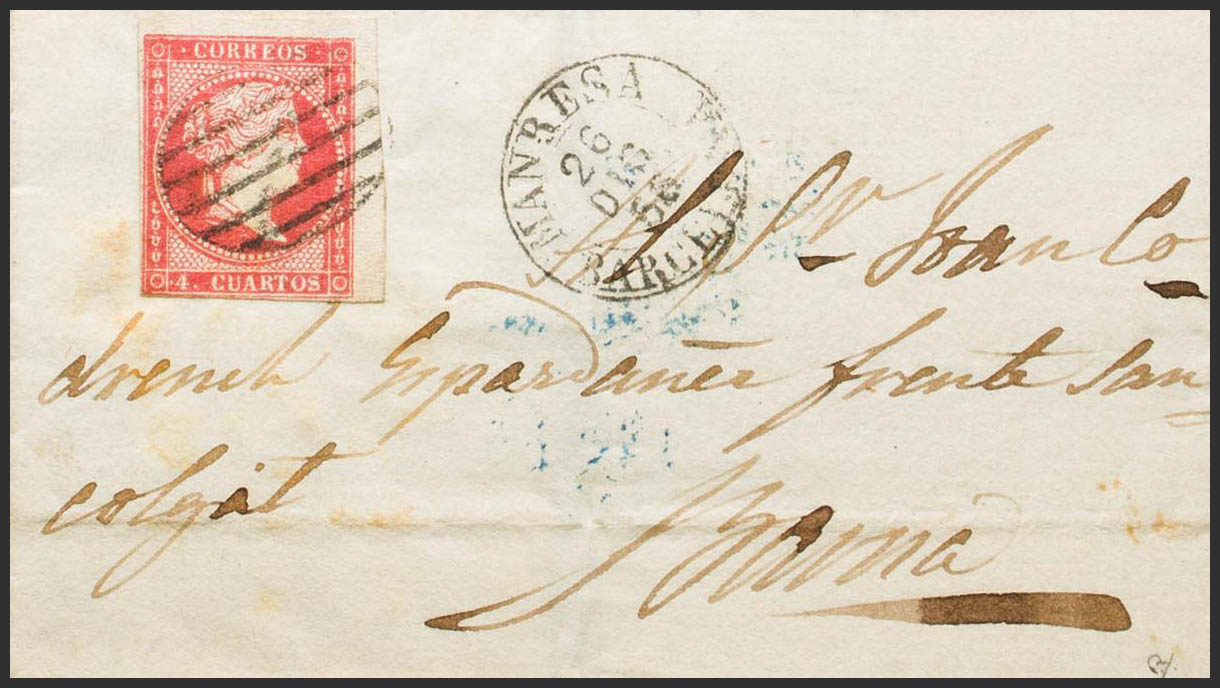 · CORREOS ·
4. CUARTOS
MANRESA
26
DIC
56
BARCEL
A Sr. Juan Co-
drench Espardañer frente San
colgat